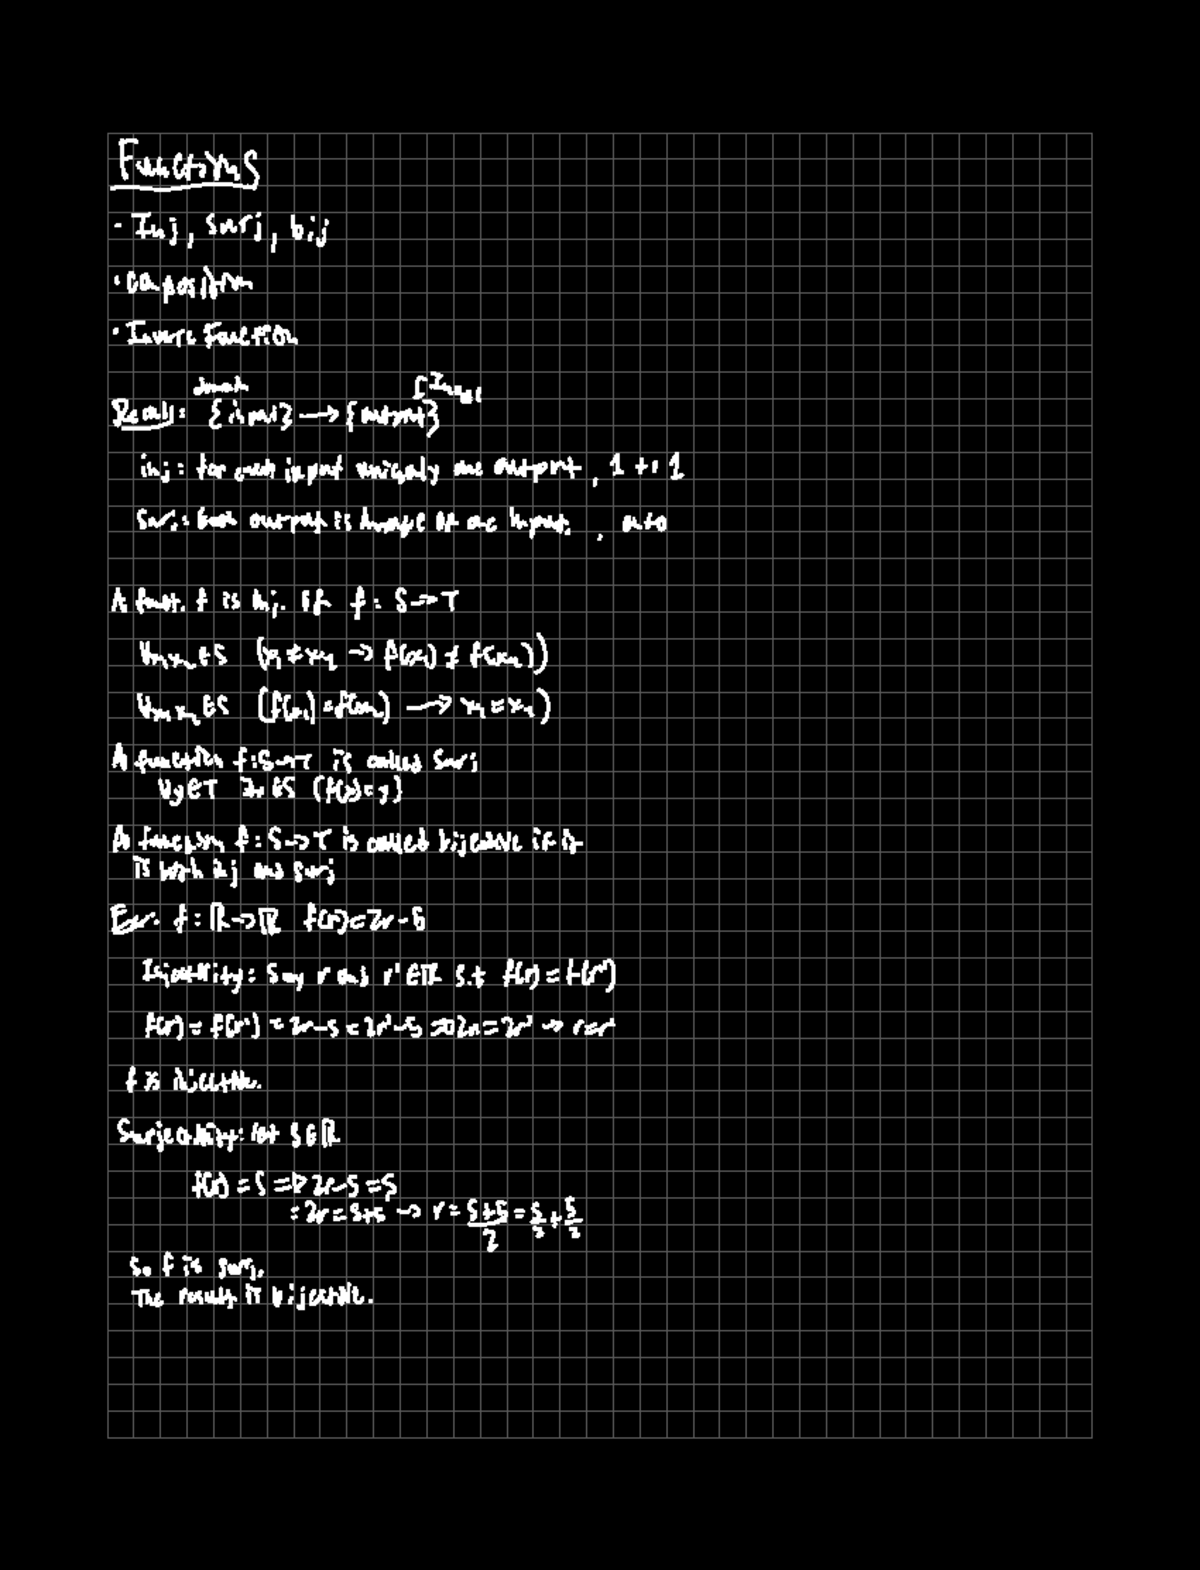 Functions
· Inj, surj, bij
· Composition
· Inverse Function
domain
Recall: {input} → {output}
inj: for each input uniquely one output, 1 to 1
Surj: Each output is image of one input, onto
A funct. f is inj. if f: S → T
∀x₁x₂ ∈ S (x₁ ≠ x₂ → f(x₁) ≠ f(x₂))
∀x₁x₂ ∈ S (f(x₁) = f(x₂) → x₁ = x₂)
A function f: S → T is called surj
∀y ∈ T ∃x ∈ S (f(x) = y)
A function f: S → T is called bijective if it
is both inj and surj
Ex. f: ℝ → ℝ f(r) = 2r - 5
Injectivity: Say r and r' ∈ ℝ s.t f(r) = f(r')
f(r) = f(r') = 2r - 5 = 2r' - 5 ⇒ 2r = 2r' → r = r'
f is injective.
Surjectivity: let s ∈ ℝ
f(r) = s ⇒ 2r - 5 = s
= 2r = s + 5 → r = (s+5)/2 = s/2 + 5/2
So f is surj.
The result is bijective.